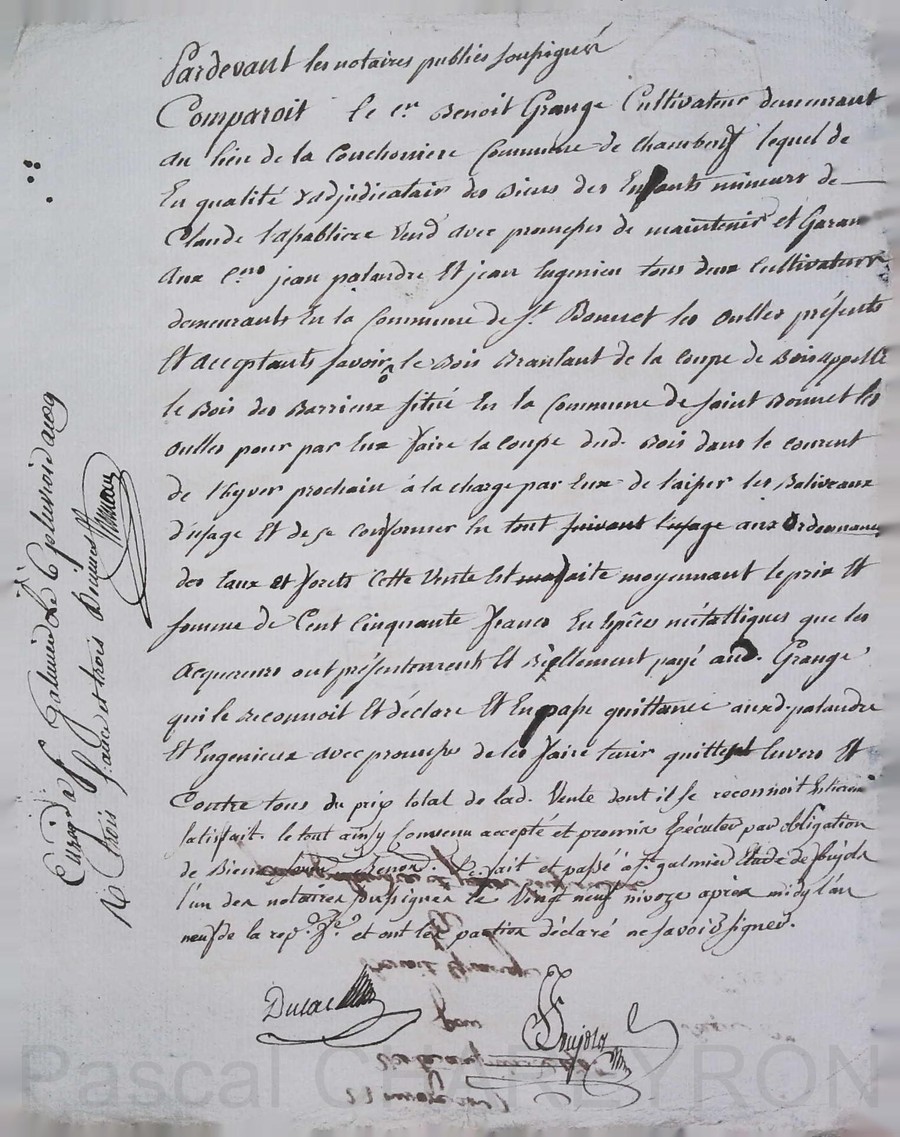 Pardevant les notaires publics soussignés
Comparoit le c.en Benoit Grange Cultivateur demeurant
au lieu de la Conchoniere Commune de Chambœuf lequel de
En qualité d'adjudicataire des Biens des Enfants mineurs de
Claude Lapabliere Vend avec promesses de maintenir et Garan
aux C.ens jean palandre Et jean Engenieu tous deux Cultivateurs
demeurants En la Commune de S.t Bonnet les oulles présents
Et acceptants savoir le Bois Branlant de la Coupe de Bois appellé
le Bois des Barrieux situé En la Commune de saint Bonnet les
oulles pour par Eux faire la Coupe dud. Bois dans le Courent
de l'hyver prochain à la charge par Eux de laisser les Baliveaux
d'usage Et de se Conformer En tout suivant l'usage aux Ordonnances
des Eaux et forets Cette Vente Est faite moyennant le prix Et
somme de Cent Cinquante francs En Espèces métalliques que les
acquereurs ont présentement Et Réellement payé aud. Grange
qui le Reconnoit Et déclare Et En passe quittance auxd. palandre
Et Engenieux avec promesses de les faire tenir quittes Envers Et
Contre tous du prix total de lad. Vente dont il se reconnoit
satisfait. le tout ainsy Convenu accepté et promis Exécuter par obligation
de Biens. fait et passé à S.t galmier Etude de Pujols
l'un des notaires soussignés le Vingt neuf nivoze après midy l'an
neuf de la rep. f.se et ont les parties déclaré ne savoir signer.
Dulac
Pujols
Enreg.é à S.t Galmier le 6 pluviose an 9
R. trois francs et trois
Pascal CHAREYRON